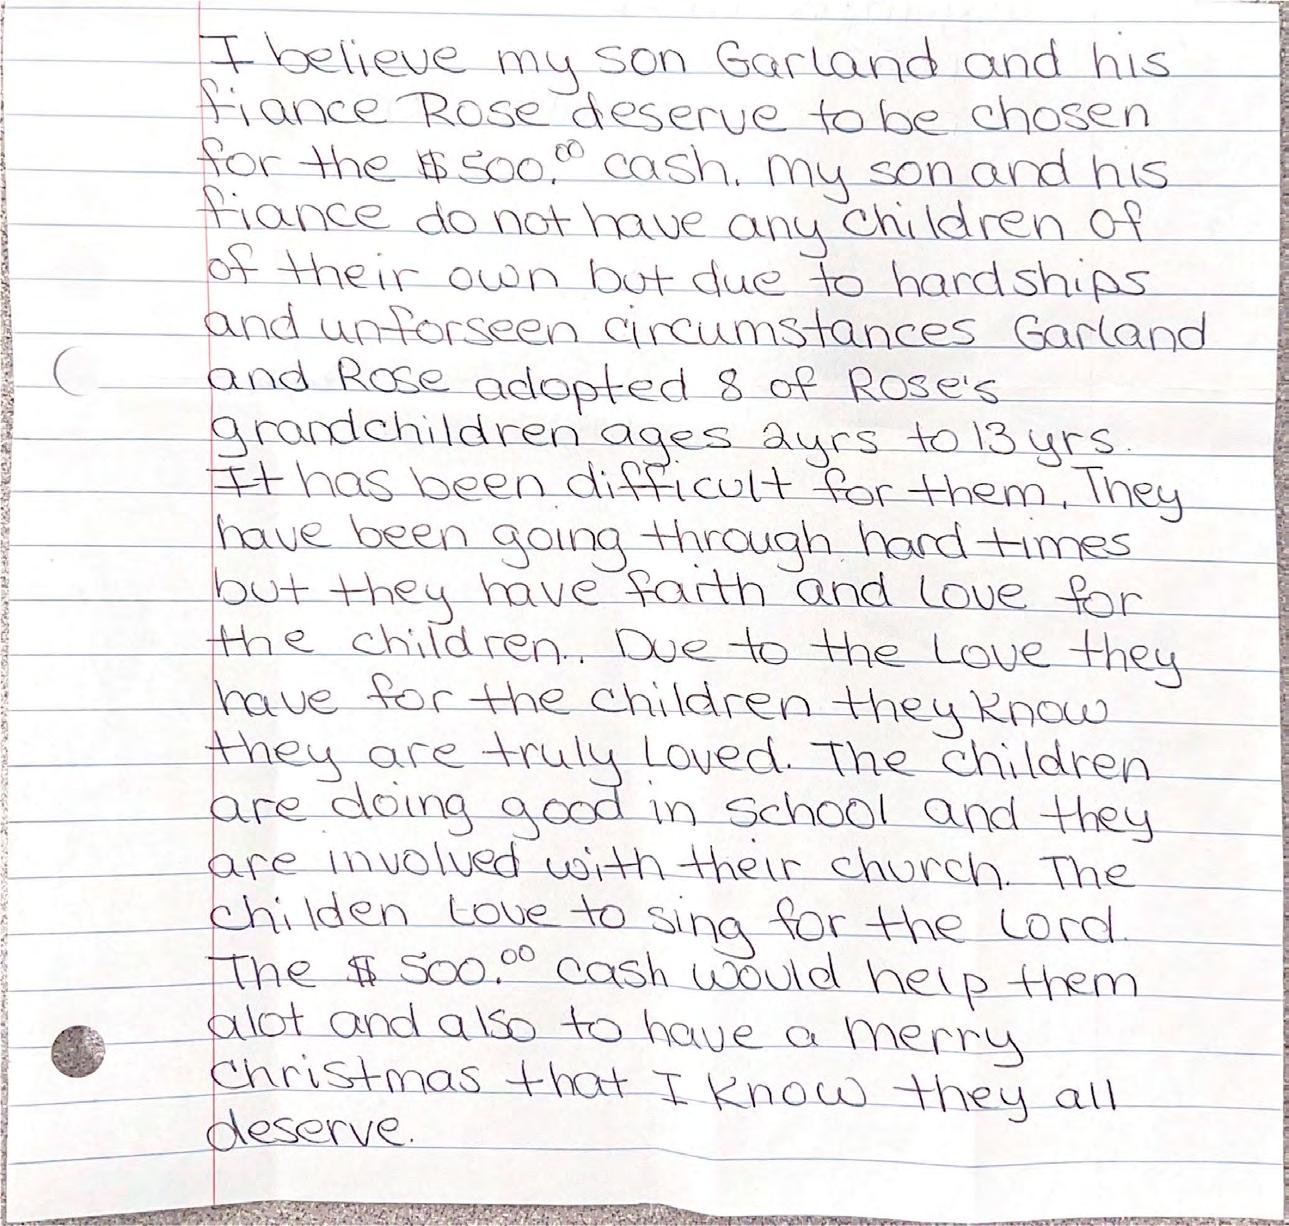 I believe my son Garland and his
fiance Rose deserve to be chosen
for the $500.00 cash. My son and his
fiance do not have any children of
of their own but due to hardships
and unforseen circumstances Garland
and Rose adopted 8 of Rose's
grandchildren ages 2yrs to 13 yrs.
It has been difficult for them. They
have been going through hard times
but they have faith and love for
the children.. Due to the Love they
have for the children they know
they are truly loved. The children
are doing good in school and they
are involved with their church. The
childen love to sing for the Lord.
The $500.00 cash would help them
alot and also to have a merry
Christmas that I know they all
deserve.